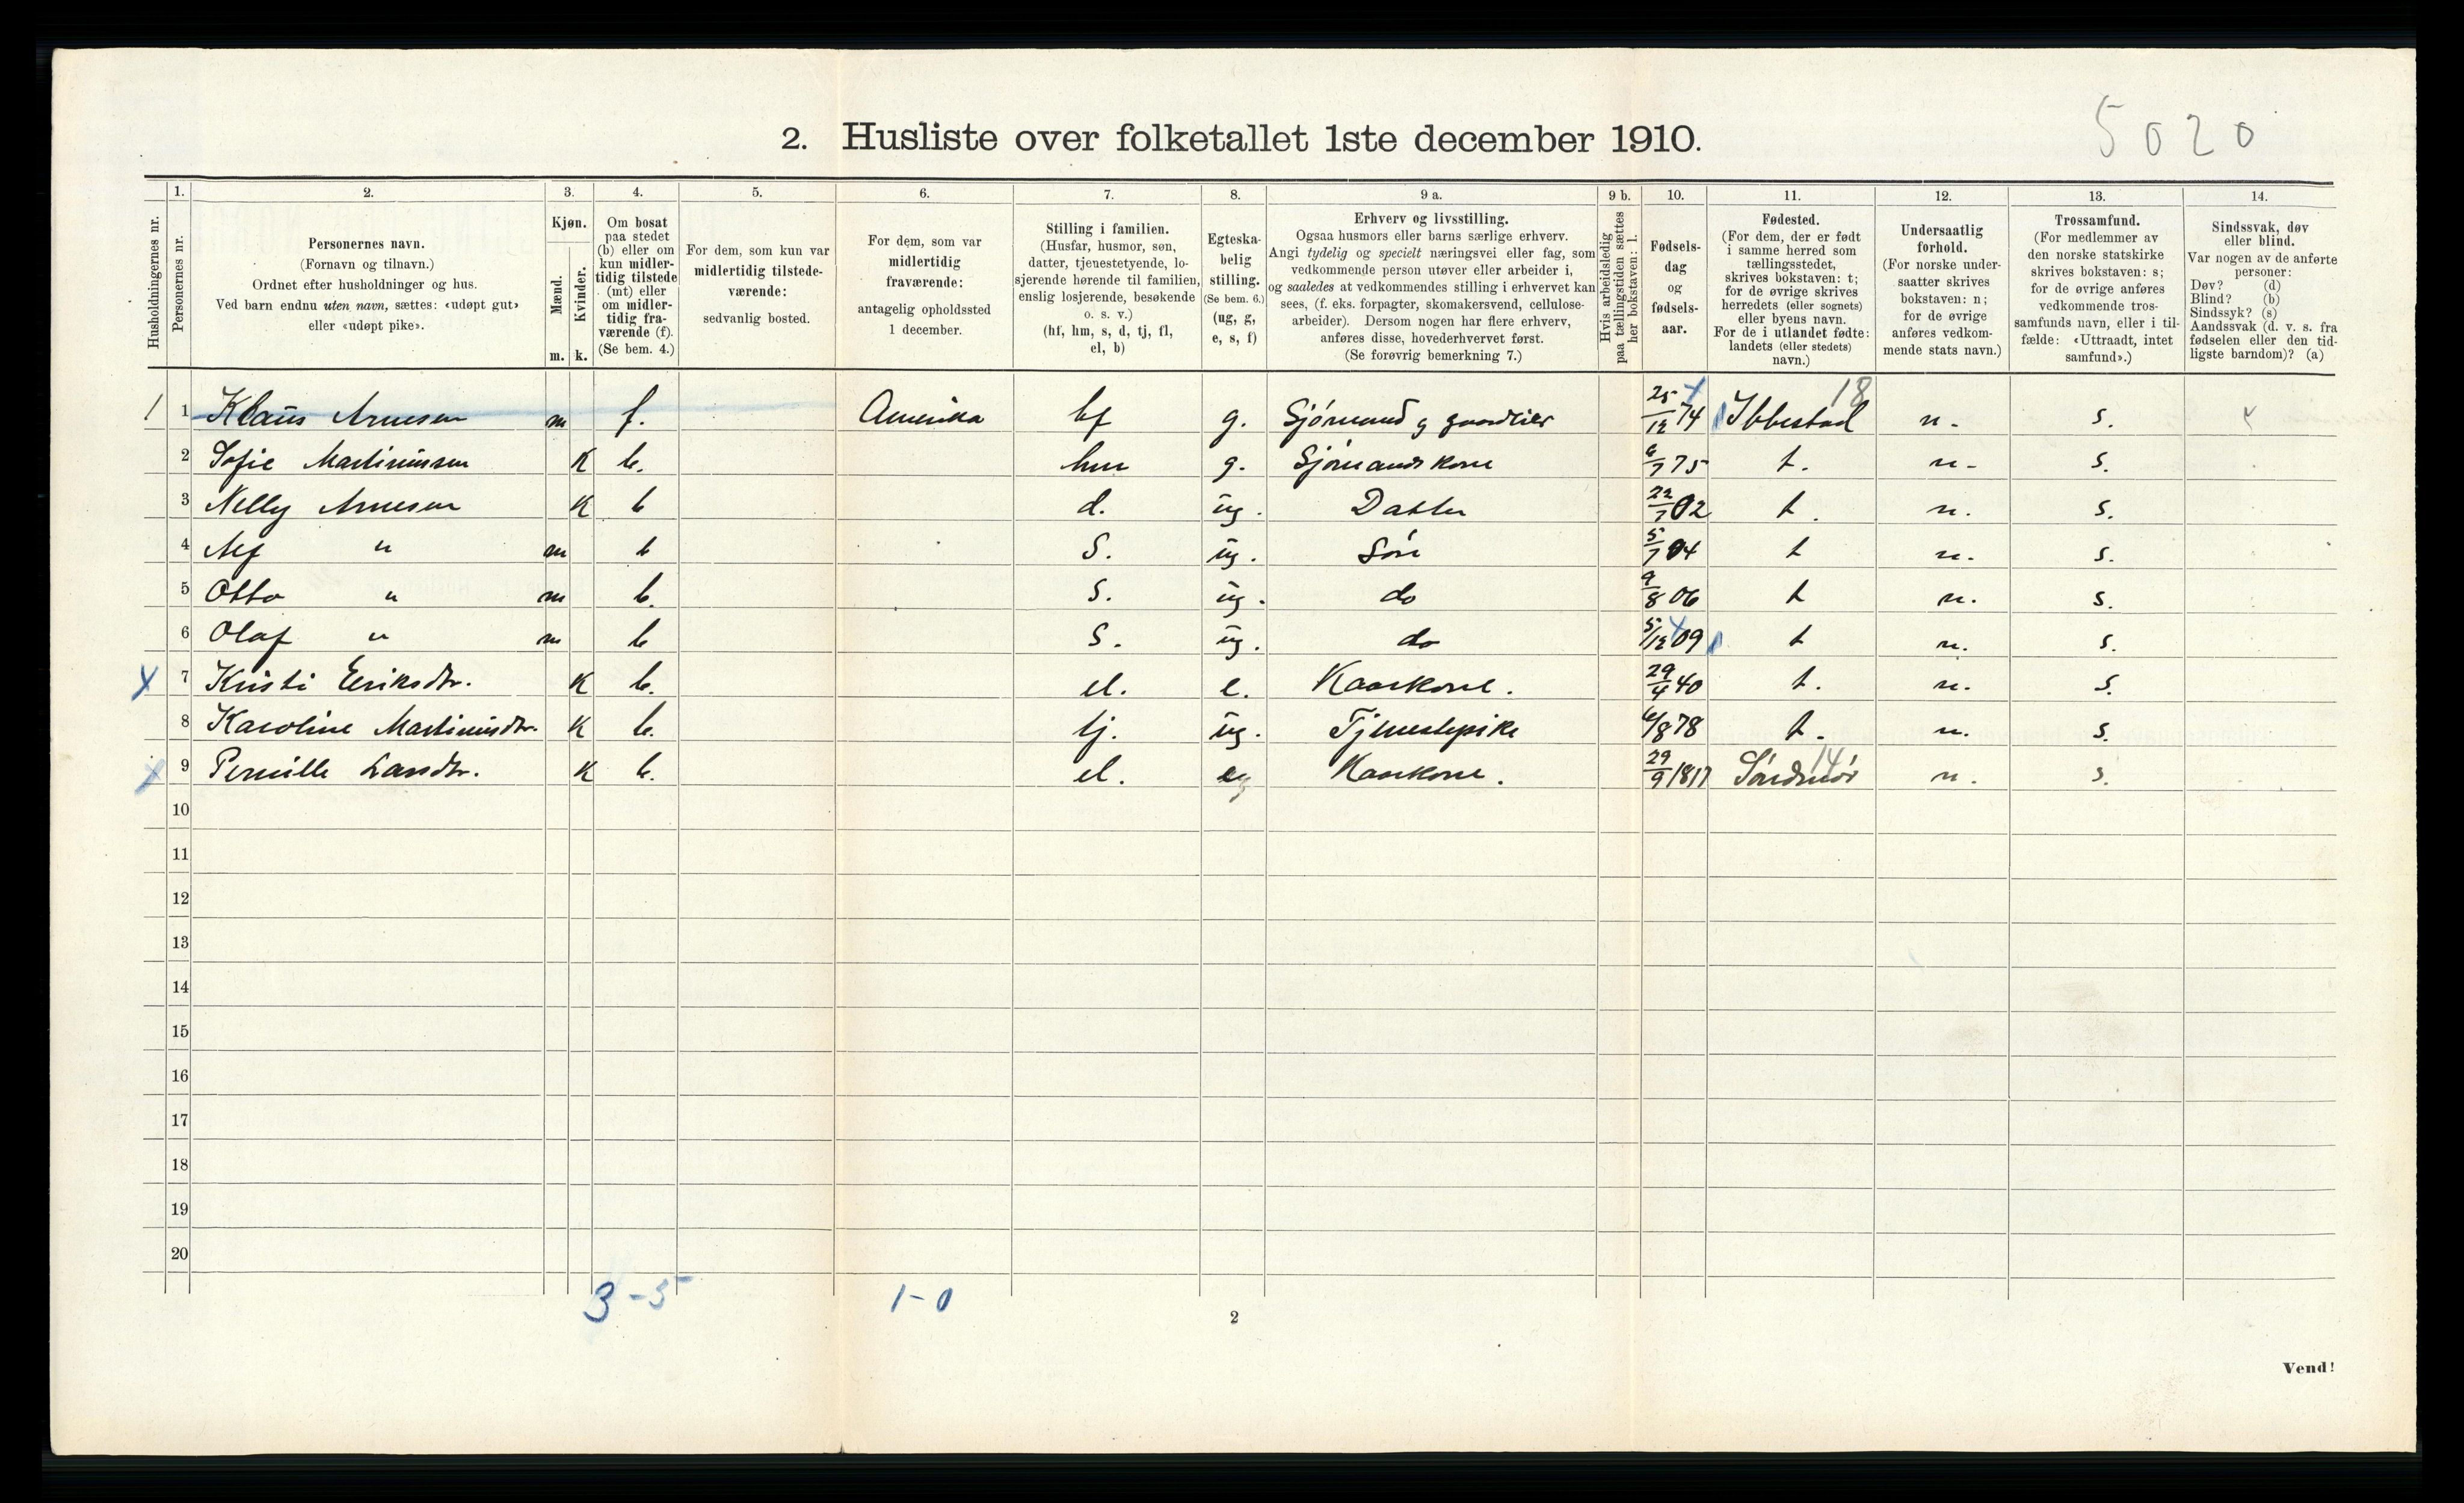 5020
2. Husliste over folketallet 1ste december 1910.
Husholdningernes nr.
1. Personernes nr.
2. Personernes navn.
(Fornavn og tilnavn.)
Ordnet efter husholdninger og hus.
Ved barn endnu uten navn, sættes: «udøpt gut»
eller «udøpt pike».
3. Kjøn.
Mænd. Kvinder.
m. k.
4. Om bosat
paa stedet
(b) eller om
kun midler-
tidig tilstede
(mt) eller
om midler-
tidig fra-
værende (f).
(Se bem. 4.)
5. For dem, som kun var
midlertidig tilstede-
værende:
sedvanlig bosted.
6. For dem, som var
midlertidig
fraværende:
antagelig opholdssted
1 december.
7. Stilling i familien.
(Husfar, husmor, søn,
datter, tjenestetyende, lo-
sjerende hørende til familien,
enslig losjerende, besøkende
o. s. v.)
(hf, hm, s, d, tj, fl,
el, b)
8. Egteska-
belig
stilling.
(Se bem. 6.)
(ug, g,
e, s, f)
9 a. Erhverv og livsstilling.
Ogsaa husmors eller barns særlige erhverv.
Angi tydelig og specielt næringsvei eller fag, som
vedkommende person utøver eller arbeider i,
og saaledes at vedkommendes stilling i erhvervet kan
sees, (f. eks. forpagter, skomakersvend, cellulose-
arbeider). Dersom nogen har flere erhverv,
anføres disse, hovederhvervet først.
(Se forøvrig bemerkning 7.)
9 b. Hvis arbeidsledig
paa tællingstiden sættes
her bokstaven: l.
10. Fødsels-
dag
og
fødsels-
aar.
11. Fødested.
(For dem, der er født
i samme herred som
tællingsstedet,
skrives bokstaven: t;
for de øvrige skrives
herredets (eller sognets)
eller byens navn.
For de i utlandet fødte:
landets (eller stedets)
navn.)
12. Undersaatlig
forhold.
(For norske under-
saatter skrives
bokstaven: n;
for de øvrige
anføres vedkom-
mende stats navn.)
13. Trossamfund.
(For medlemmer av
den norske statskirke
skrives bokstaven: s;
for de øvrige anføres
vedkommende tros-
samfunds navn, eller i til-
fælde: «Uttraadt, intet
samfund».)
14. Sindssvak, døv
eller blind.
Var nogen av de anførte
personer:
Døv? (d)
Blind? (b)
Sindssyk? (s)
Aandssvak (d. v. s. fra
fødselen eller den tid-
ligste barndom)? (a)
1 1 Klaus Arnesen m f. Amerika hf g. Sjømand g 25/12 74 Ibbestad 18 n. s.
2 Sofie Martinussen K b. hm g. Sjømands kone 6/7 75 t. n. s.
3 Nelly Arnesen K b d. ug. Datter 22/7 02 t. n. s.
4 Alf " m b S. ug. Søn 5/7 04 t n. s.
5 Otto " m b. S. ug. do 9/8 06 t n. s.
6 Olaf " m b S. ug. do 5/12 09 t n. s.
x 7 Kristi Eriksdtr. K b. el. e. Kaarkone. 29/4 40 t. n. s.
8 Karoline Martinusdtr. K b. tj. ug. Tjenestepike 6/8 78 t. n. s.
x 9 Pernille Larsdtr. K b. el. e Kaarkone. 29/9 1817 Søndmør 14 n. s.
10
11
12
13
14
15
16
17
18
19
20
3-5 1-0
2
Vend!